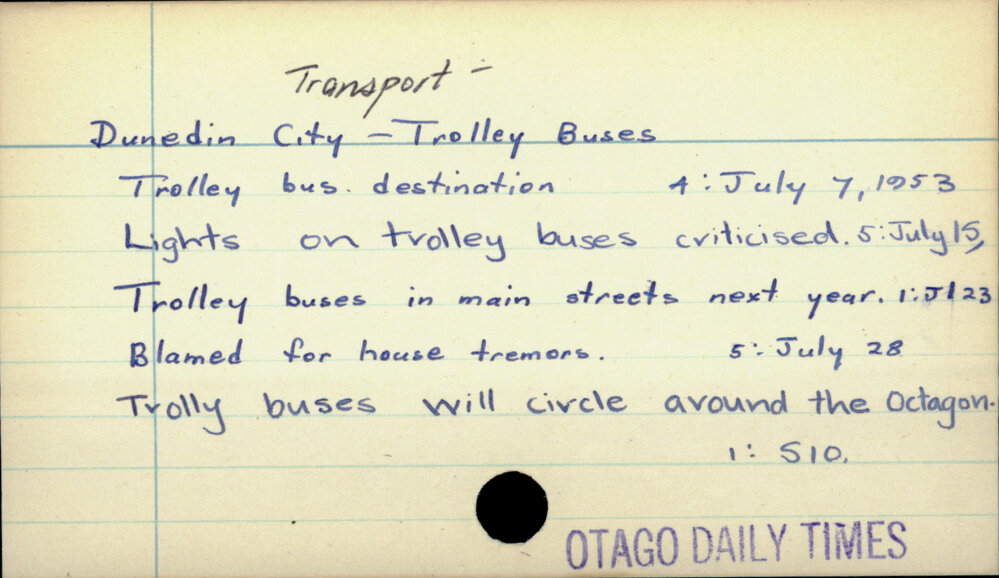 Transport -
Dunedin City - Trolley Buses
Trolley bus. destination 4: July 7, 1953
Lights on trolley buses criticised. 5: July 15,
Trolley buses in main streets next year. 1: Jl 23
Blamed for house tremors. 5: July 28
Trolly buses will circle around the Octagon.
1: S10.
OTAGO DAILY TIMES